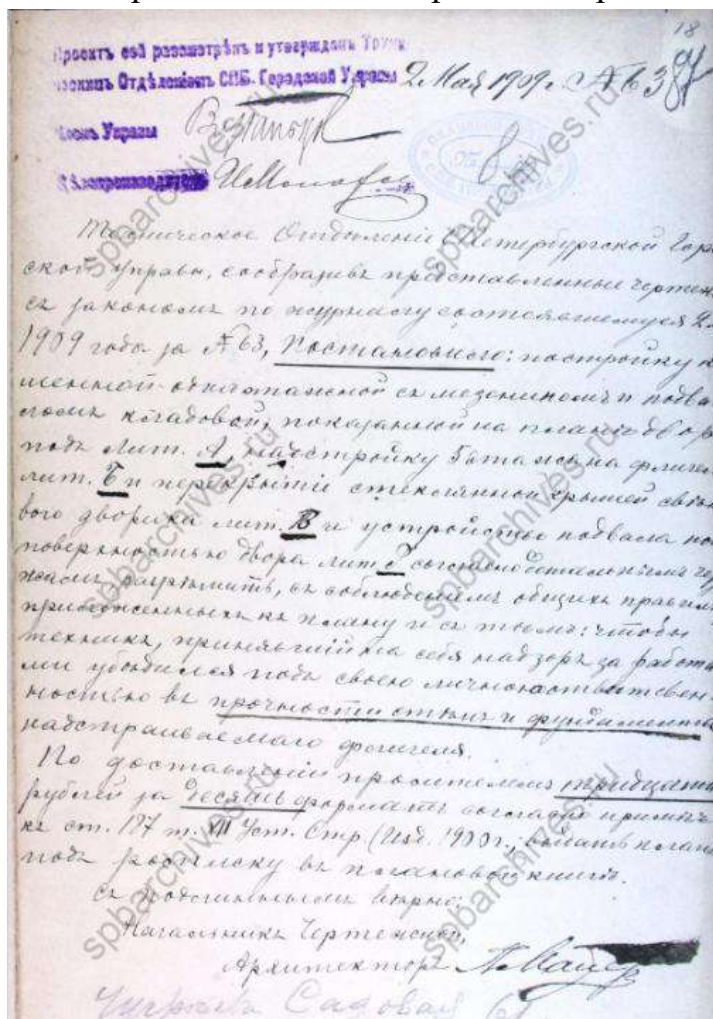 18
Проектъ сей разсмотрѣнъ и утвержденъ Техни
ческимъ Отдѣленіемъ СПБ. Городской Управы 2 Мая 1909 г. № 63
Членъ Управы
Дѣлопроизводитель
Техническое Отдѣленіе С.Петербургской Город
ской Управы, сообразивъ представленные чертежи
съ закономъ по журналу состоявшемуся 2
1909 года за № 63, Постановило: постройку ка
менной одноэтажной съ мезониномъ и подва
ломъ кладовой, показанной на планѣ двора
подъ лит. А, надстройку 5 этажа на флигелѣ
лит. Б и перекрытіе стеклянной крышей свѣто
вого дворика лит. В и устройство подвала подъ
поверхностью двора лит. согласно детальнымъ чер
жамъ разрѣшить, съ соблюденіемъ общихъ правилъ
приложенныхъ къ плану и съ тѣмъ: чтобы
техникъ, принявшій на себя надзоръ за работа
ми убѣдился подъ своею личною отвѣтствен
ностью въ прочности стѣнъ и фундамента
надстраиваемаго флигеля.
По доставленіи просителемъ тридцати
рублей за десять форматъ согласно примѣч.
къ ст. 187 т. XII Уст. Стр. (Изд. 1900 г., выдать планъ
подъ росписку въ плановой книгѣ.
Съ подлиннымъ вѣрно:
Начальникъ Чертежной,
Архитекторъ
Садовая
spbarchives.ru
spbarchives.ru
spbarchives.ru
spbarchives.ru
spbarchives.ru
spbarchives.ru
spbarchives.ru
spbarchives.ru